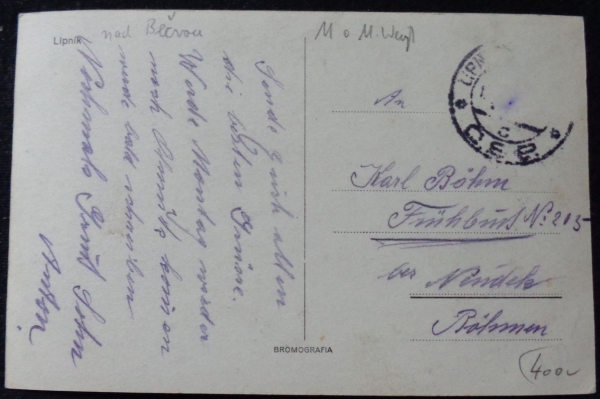 Lipník nad Bečvou
Sende Euch allen
die besten Grüsse.
Werde Montag wieder
nach Olmütz
werde bald schreiben
Nochmals Gruß Sohn
Anton.
BROMOGRAFIA
LIPN
Č.S.P.
An
Karl Böhm
Frühbuß No 215
bei Neudek
Böhmen
400